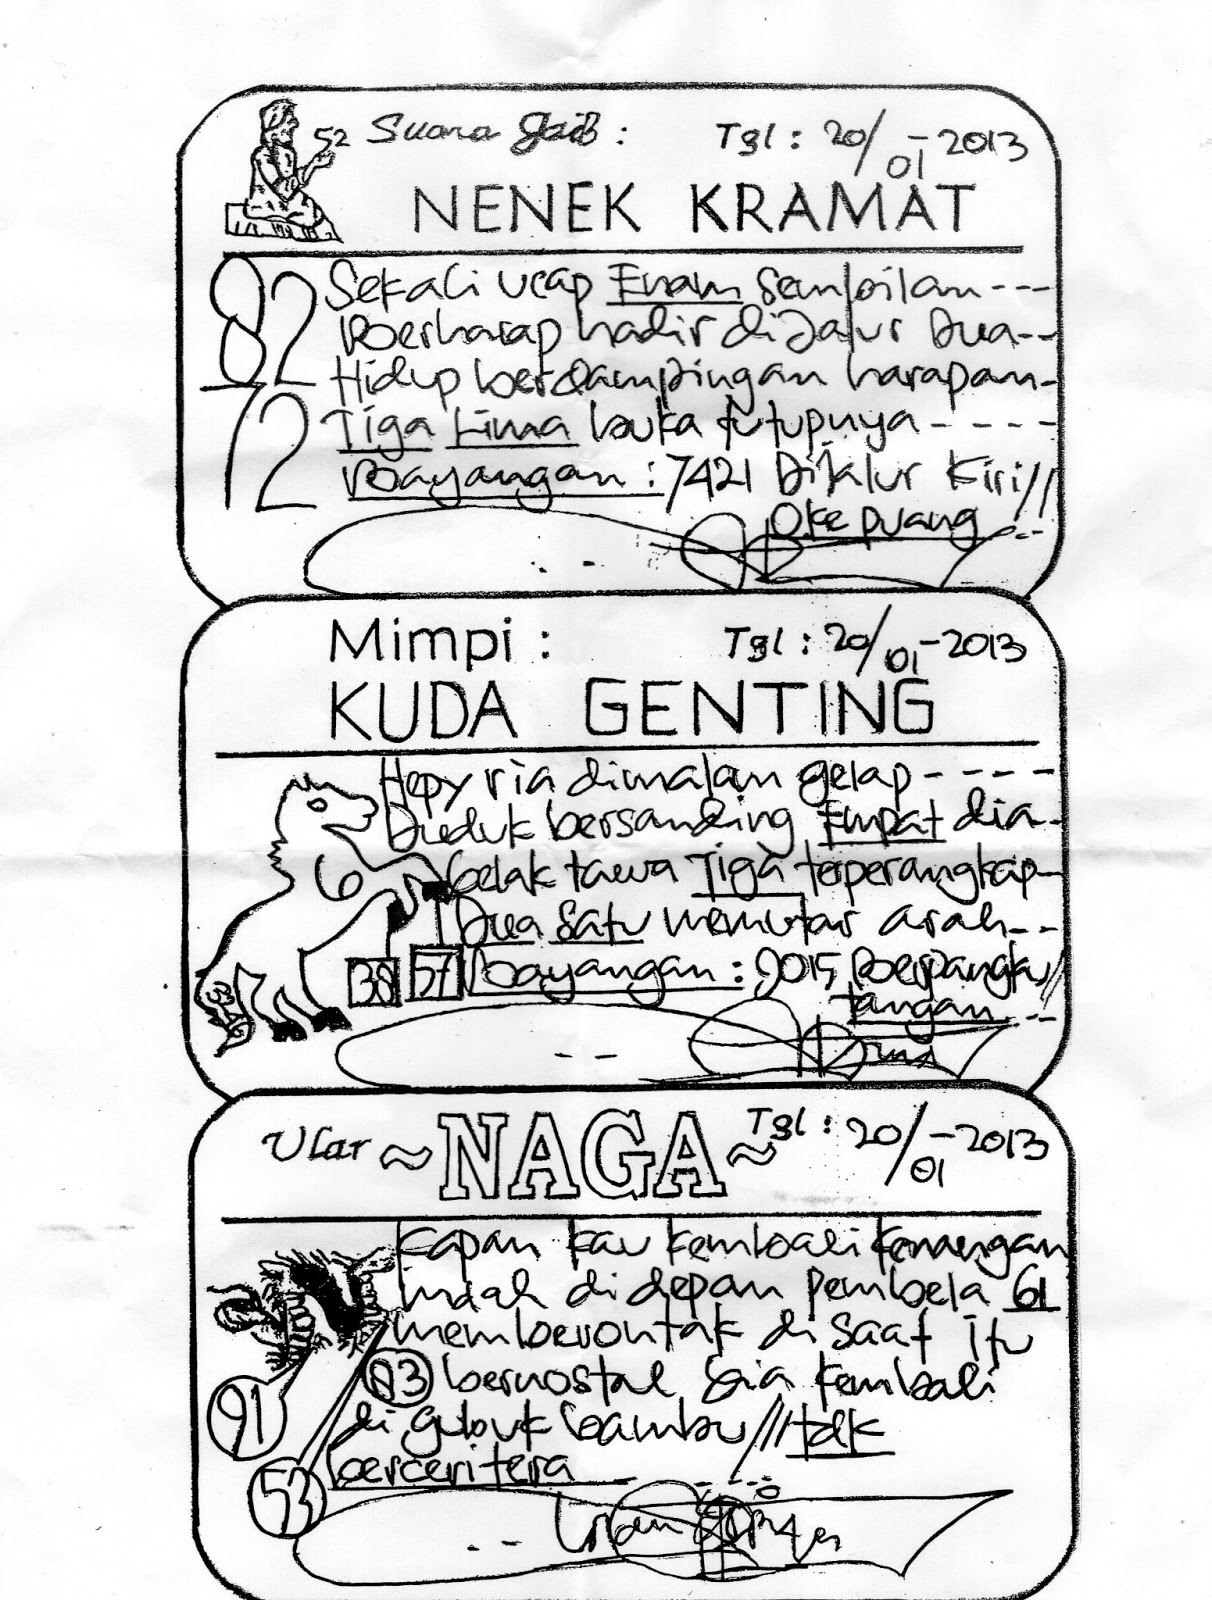 52 Suara Gaib : Tgl : 20/01-2013
NENEK KRAMAT
82 Sekali ucap Enam Sembilan ----
Berharap hadir diJalur Dua--
Hidup berdampingan harapan-
72 Tiga Lima buka tutupnya -----
Bayangan : 7421 DiJalur Kiri//
Oke puang ---
Mimpi : Tgl : 20/01-2013
KUDA GENTING
Hepy ria dimalam gelap ----
Duduk bersanding Empat dia-
6 gelak tawa Tiga terperangkap-
Dua Satu memutar arah---
38 57 Bayangan : 9015 Berpangku//
tangan ---
Ular ~NAGA~ Tgl : 20/01-2013
Kapan kau kembali kenangan
indah di depan pembela 61
memberontak di saat itu
83 bernostal gia kembali
91 di gubuk bambu///tdk
53 berceritera